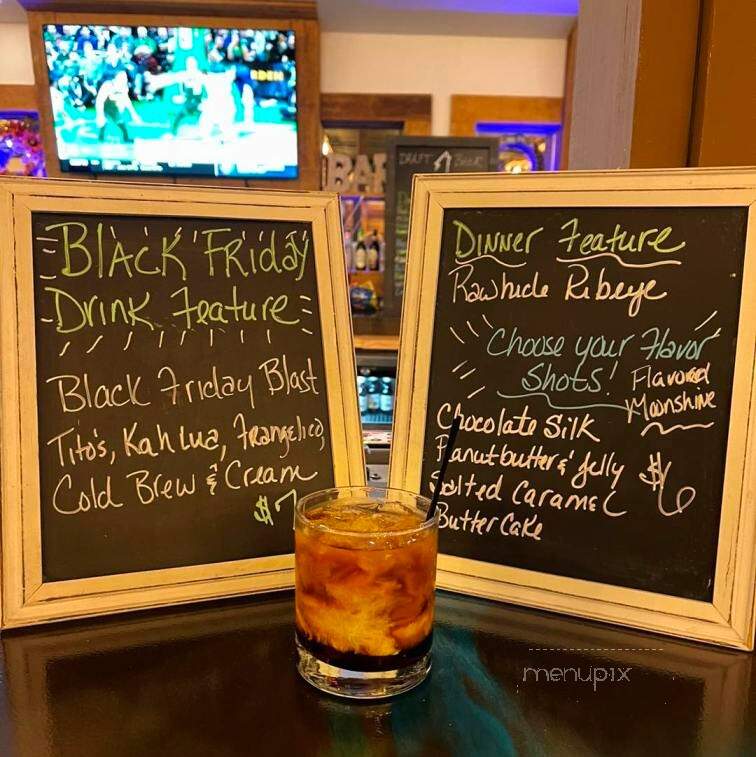 BLACK FRIDAY
DRINK FEATURE
Black Friday Blast
Tito's, Kahlua, Frangelico,
Cold Brew & Cream
$7
DINNER FEATURE
Rawhide Ribeye
Choose your Flavor
Shots!
Flavored
Moonshine
Chocolate Silk
Peanutbutter & Jelly
Salted Caramel
Butter Cake
$6
BAR
DRAFT BEER
menupix